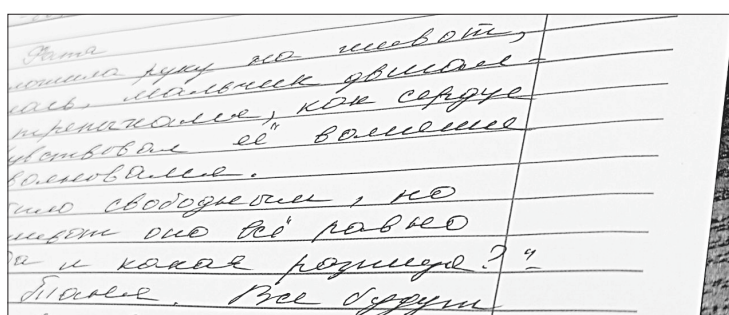 Фата
ложила руку на живот,
лась, мальчик двигал-
трепыхался, как сердце
увствовал её волнение
волновался.
ыло свободным, но
живот оно всё равно
а и какая разница?"
Таня. Все будут